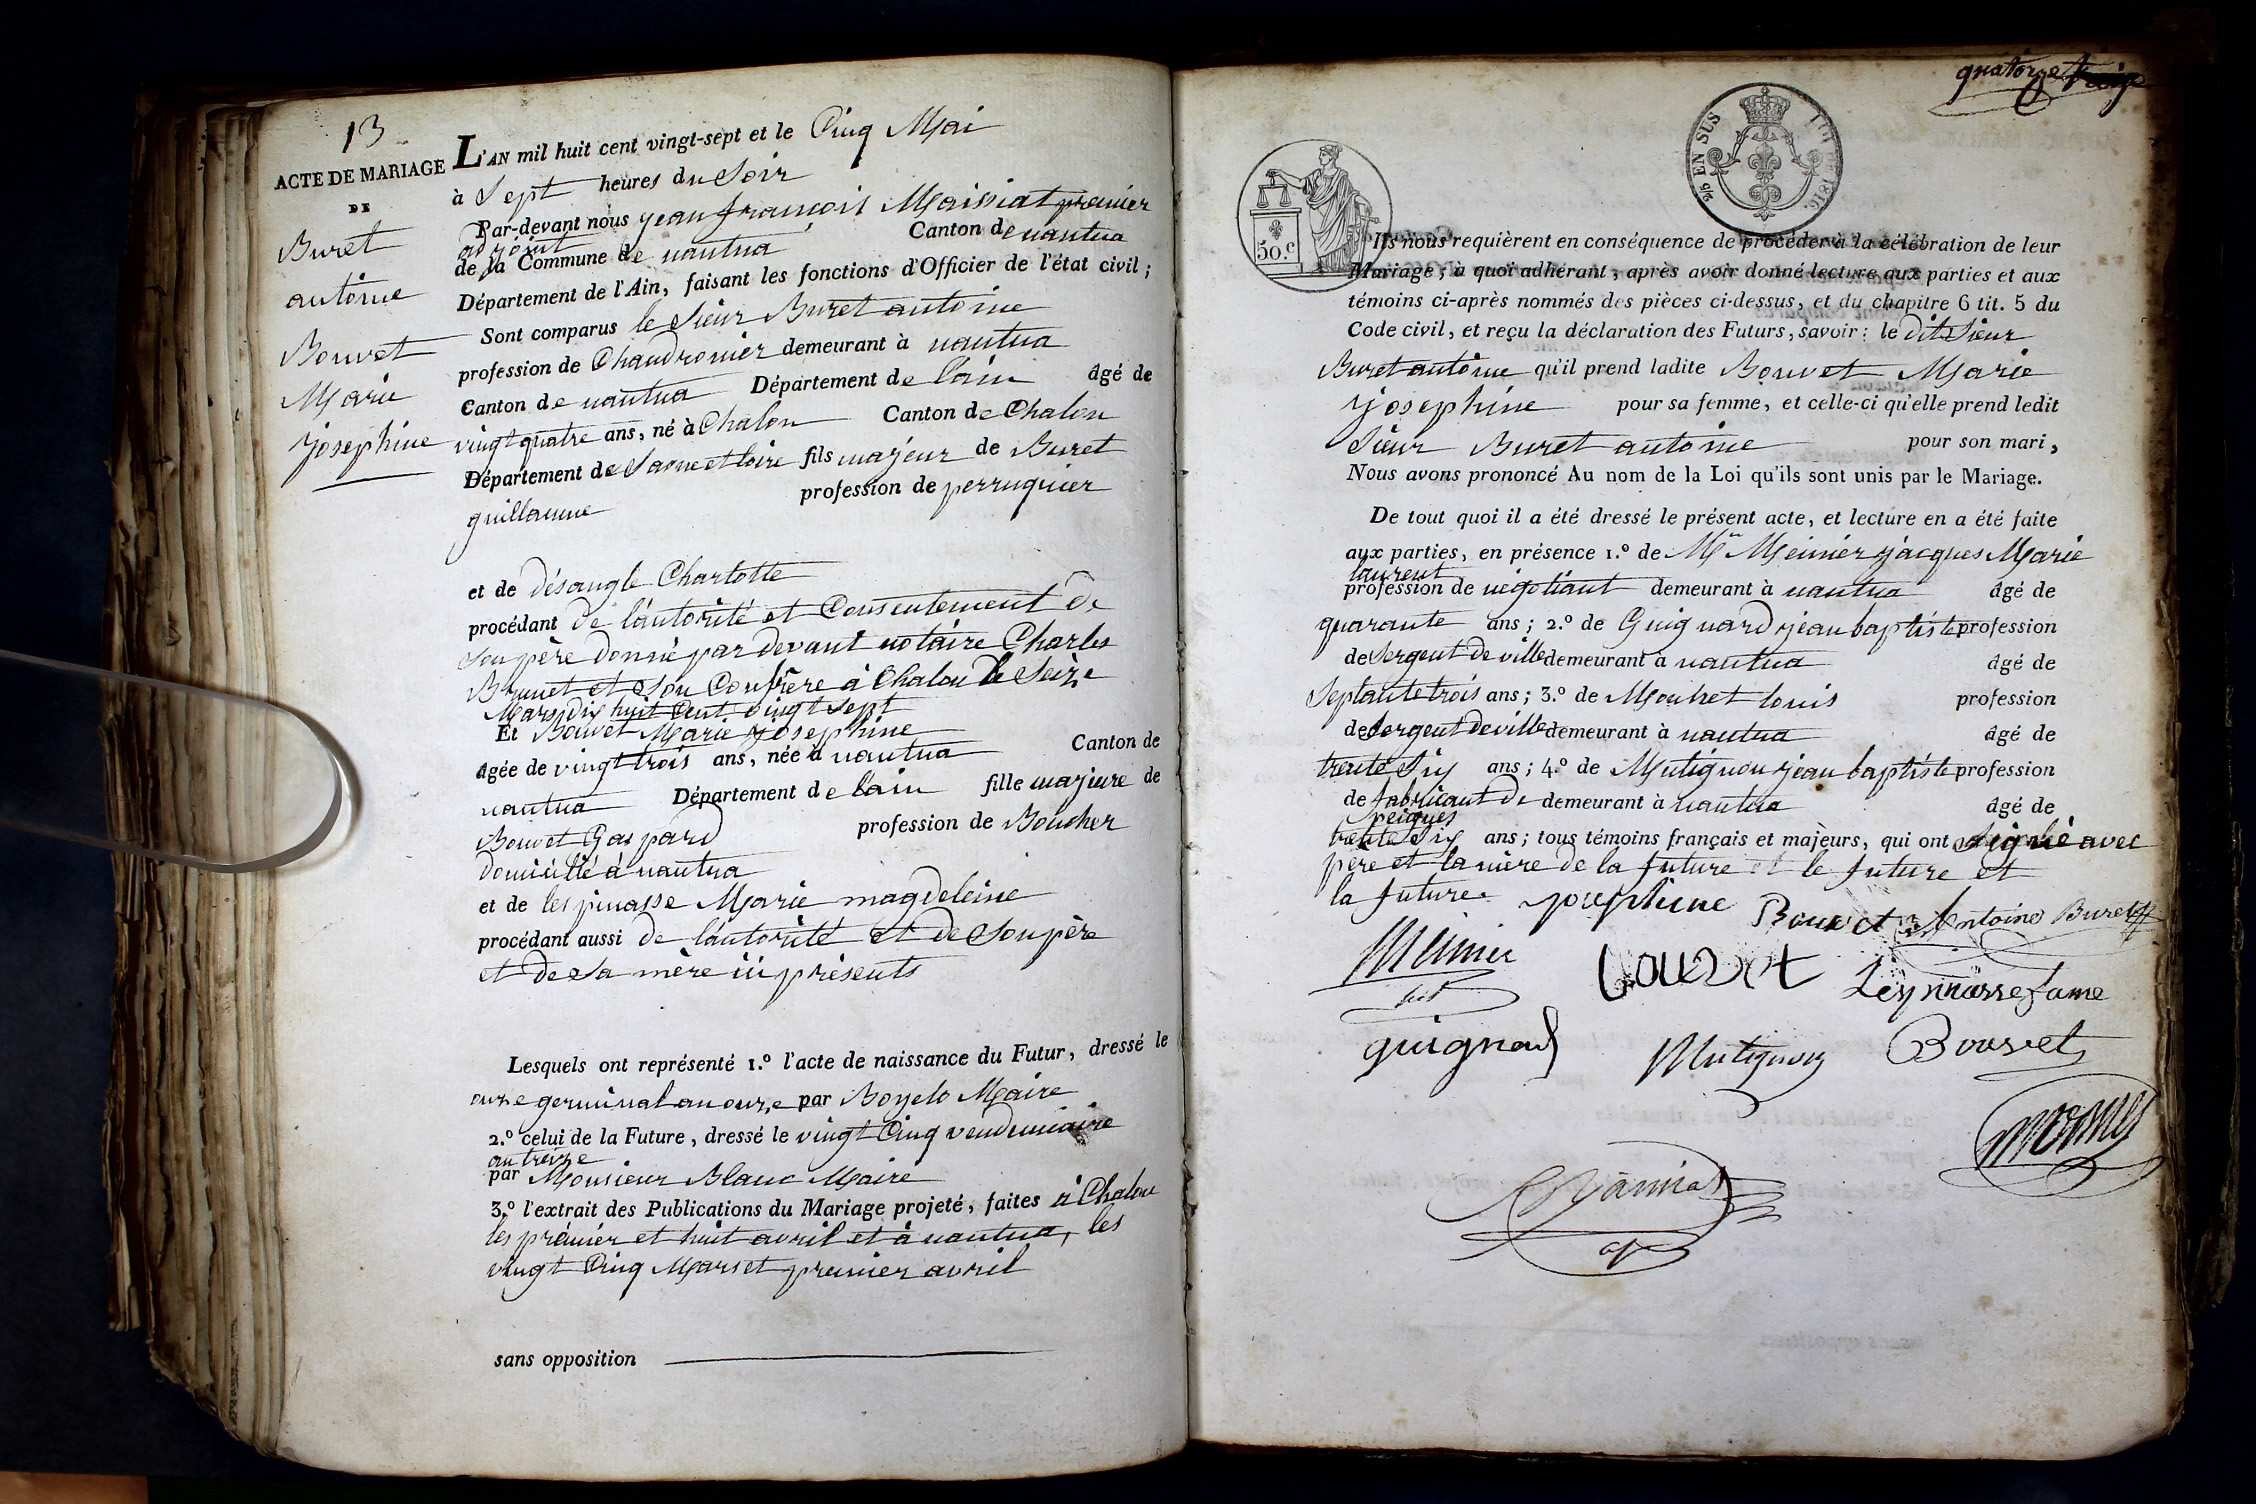 13
ACTE DE MARIAGE
DE
Buret
antoine
Bouvet
Marie
Josephine
L'AN mil huit cent vingt-sept et le Cinq Mai
à Sept heures du Soir
Par-devant nous jean françois Maissiat premier
adjoint
de la Commune de nantua Canton de nantua
Département de l'Ain, faisant les fonctions d'Officier de l'état civil ;
Sont comparus le Sieur Buret antoine
profession de Chaudronier demeurant à nantua
Canton de nantua Département de lain âgé de
vingt quatre ans, né à Chalon Canton de Chalon
Département de Saone et loire fils majeur de Buret
guillaume profession de perruquier
et de désangle Charlotte
procédant de l'autorité et Consentement de
Son père donné par devant notaire Charles
Brunet et Son Confrère à Chalon le Seize
Mars dix huit Cent vingt Sept
Et Bouvet Marie Josephine
âgée de vingt trois ans, née à nantua Canton de
nantua Département de lain fille majeure de
Bouvet Gaspard profession de Boucher
domicilié à nantua
et de lespinasse Marie magdeleine
procédant aussi de l'autorité et de Son père
et de Sa mère ici présents
Lesquels ont représenté 1.º l'acte de naissance du Futur, dressé le
onze germinal an onze par Boyelo Maire
2.º celui de la Future, dressé le vingt Cinq vendemiaire
an treize
par Monsieur Blanc Maire
3.º l'extrait des Publications du Mariage projeté, faites à Chalon
les prémier et huit avril et à nantua, les
vingt Cinq Mars et premier avril
sans opposition
quatorze
2/5 EN SUS
1816.
50.c
Ils nous requièrent en conséquence de procéder à la célébration de leur
Mariage ; à quoi adhérant, après avoir donné lecture aux parties et aux
témoins ci-après nommés des pièces ci-dessus, et du chapitre 6 tit. 5 du
Code civil, et reçu la déclaration des Futurs, savoir : le dit Sieur
Buret antoine qu'il prend ladite Bouvet Marie
Josephine pour sa femme, et celle-ci qu'elle prend ledit
Sieur Buret antoine pour son mari,
Nous avons prononcé Au nom de la Loi qu'ils sont unis par le Mariage.
De tout quoi il a été dressé le présent acte, et lecture en a été faite
aux parties, en présence 1.º de Mr Meinier jacques Marie
laurent
profession de négotiant demeurant à nantua âgé de
quarante ans ; 2.º de Guignard jean baptiste profession
de Sergent de ville demeurant à nantua âgé de
Septante trois ans ; 3.º de Mouhet louis profession
de Sergent de ville demeurant à nantua âgé de
trente Six ans ; 4.º de Mutignon jean baptiste profession
de fabricant de demeurant à nantua âgé de
peignes
trente Six ans ; tous témoins français et majeurs, qui ont Signé avec
père et la mère de la future et le future et
la future. josephine Bouvet Antoine Buret
Meinier
Bouvet Léspinasse fame
guignard Mutignon Bouvet